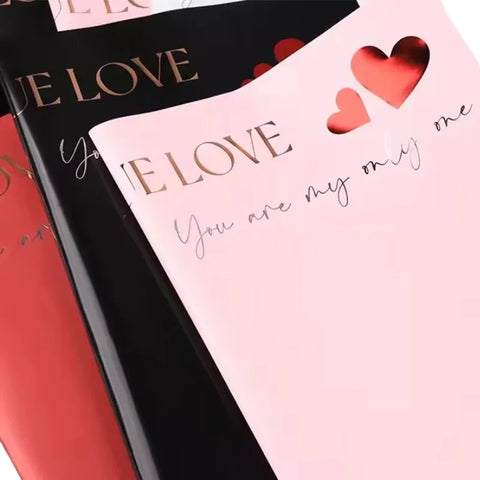 UE LOVE
Yo
UE LOVE
You are my only one